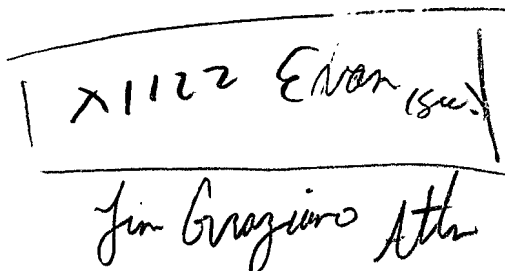 x1122 Evan (sec.)
Jim Graziano